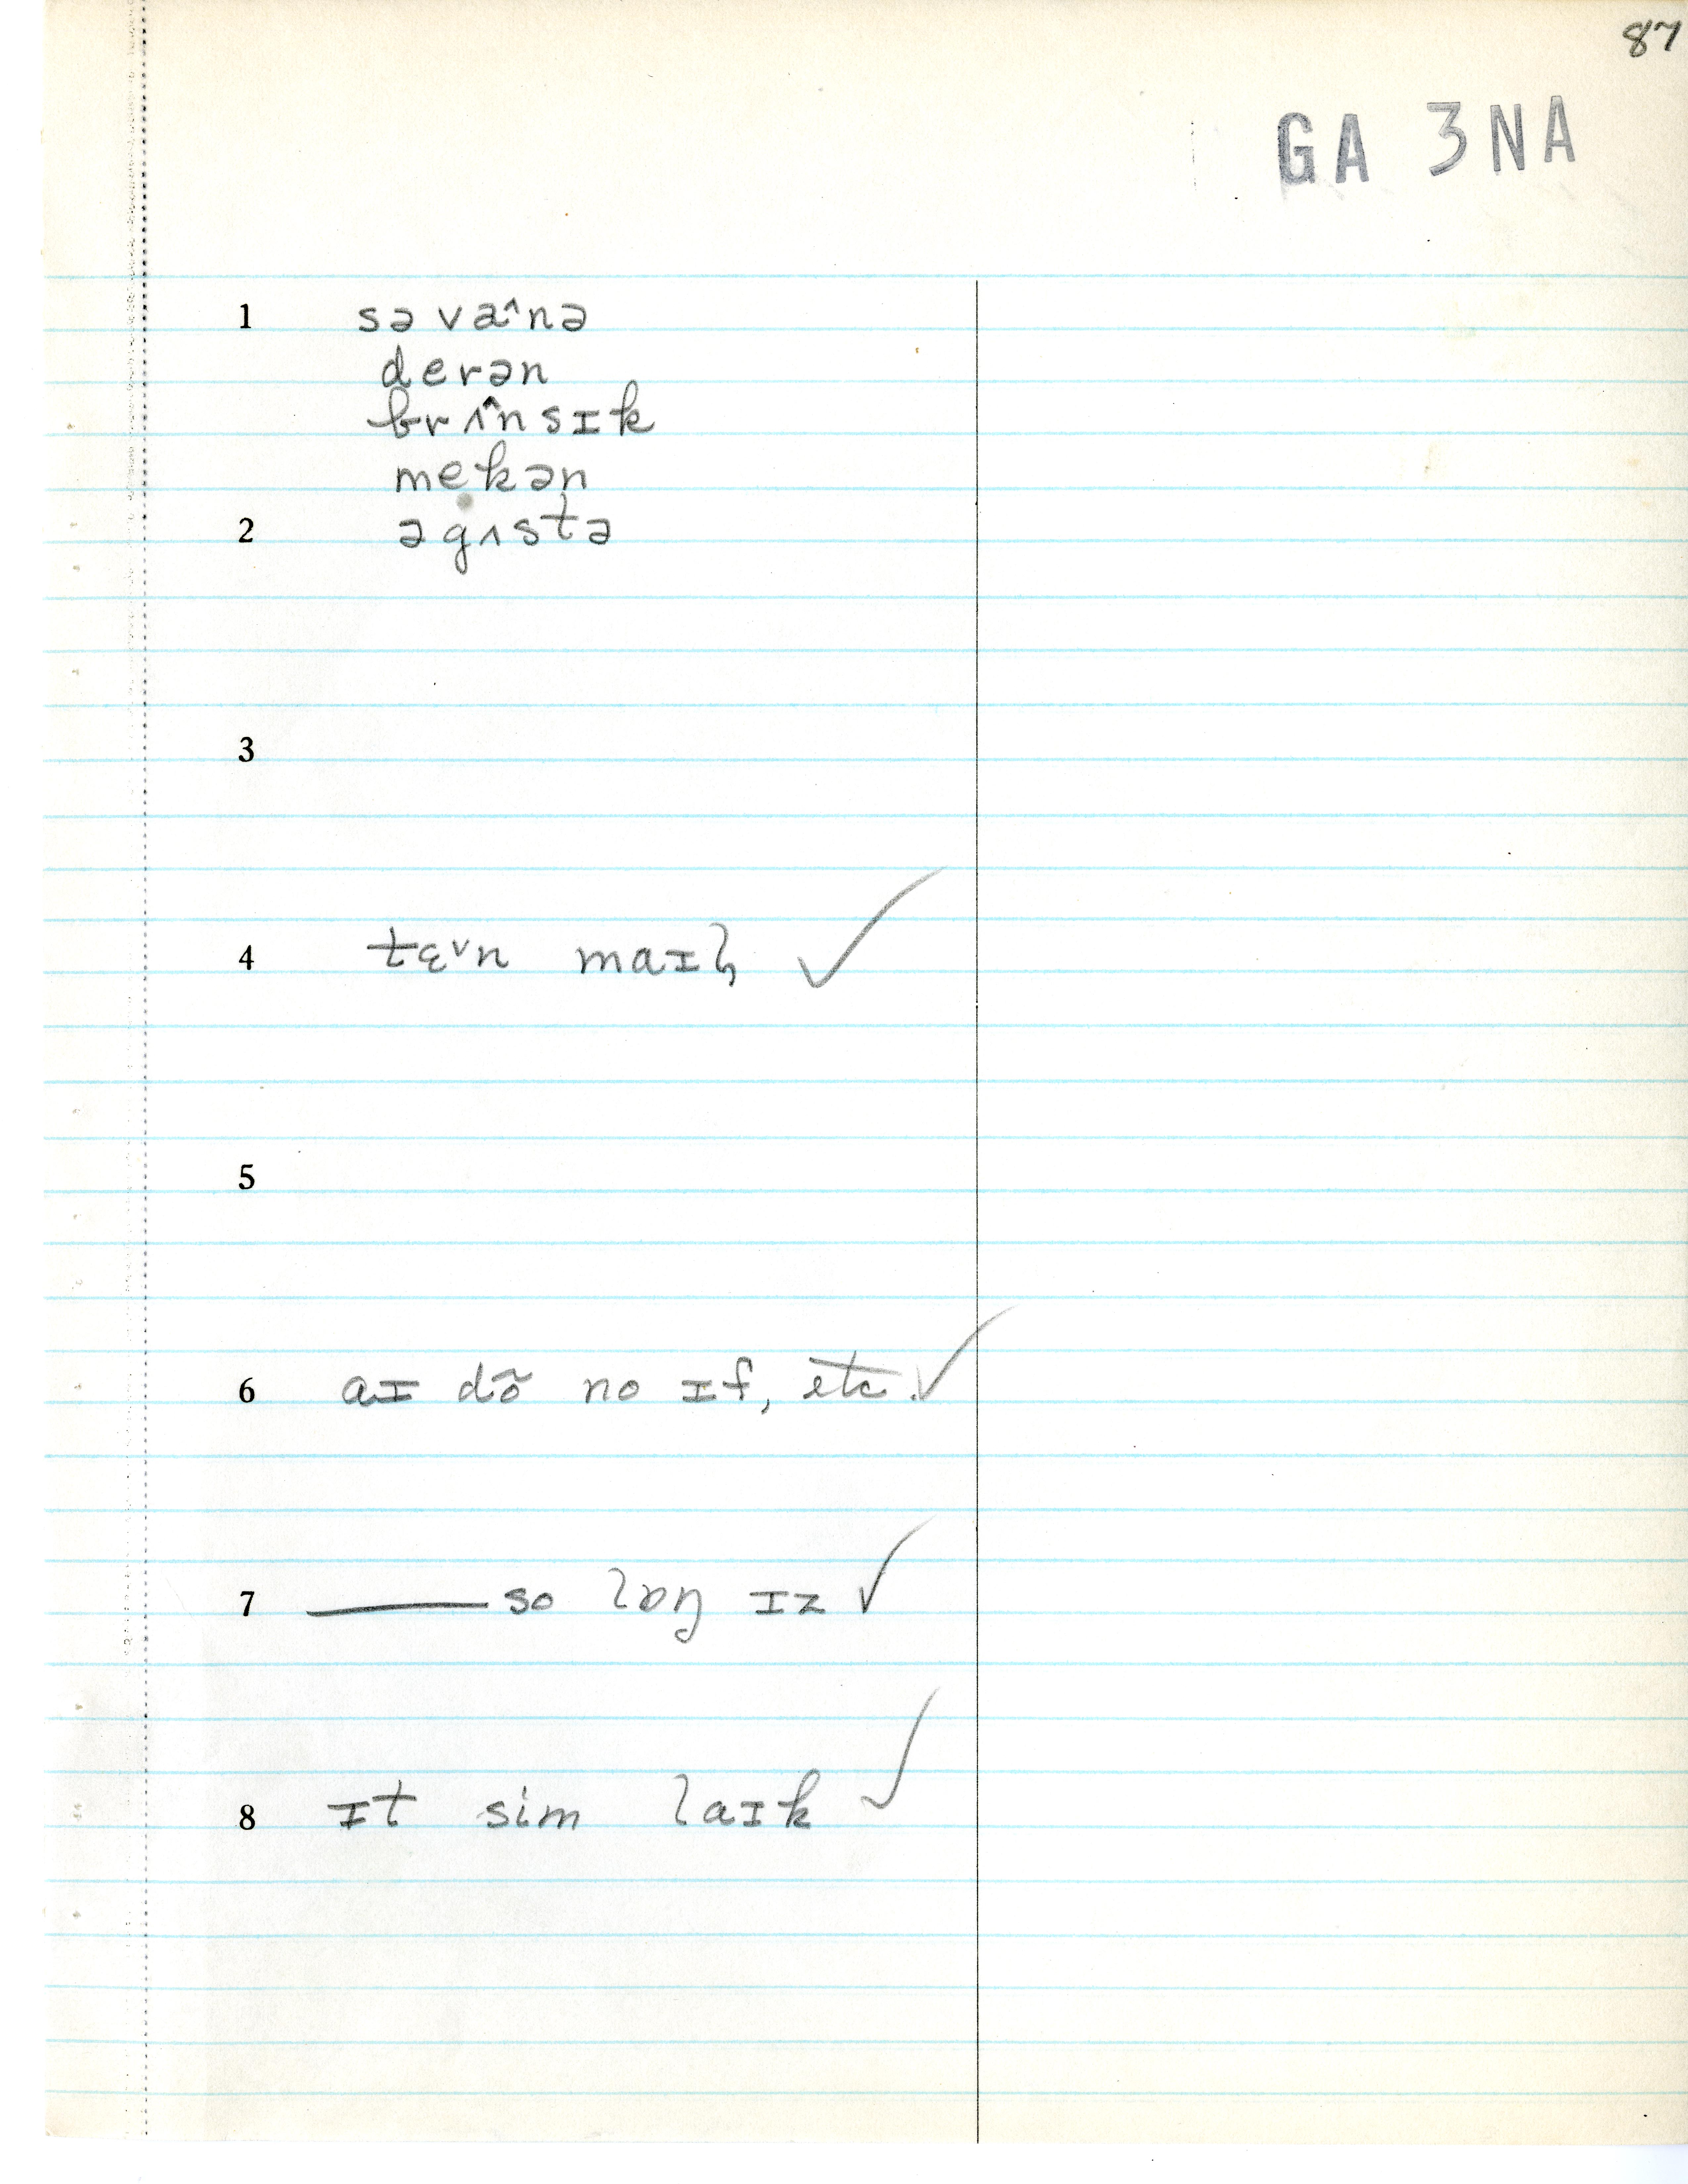 87
GA 3NA
1 səva˄nə
derən
brʌ˄nsɪk
mekən
2 əgʌstə
3
4 tɛ˅n maɪɫ ✓
5
6 aɪ dõ no ɪf, etc. ✓
7 —— so lɒŋ ɪz ✓
8 ɪt sim laɪk ✓